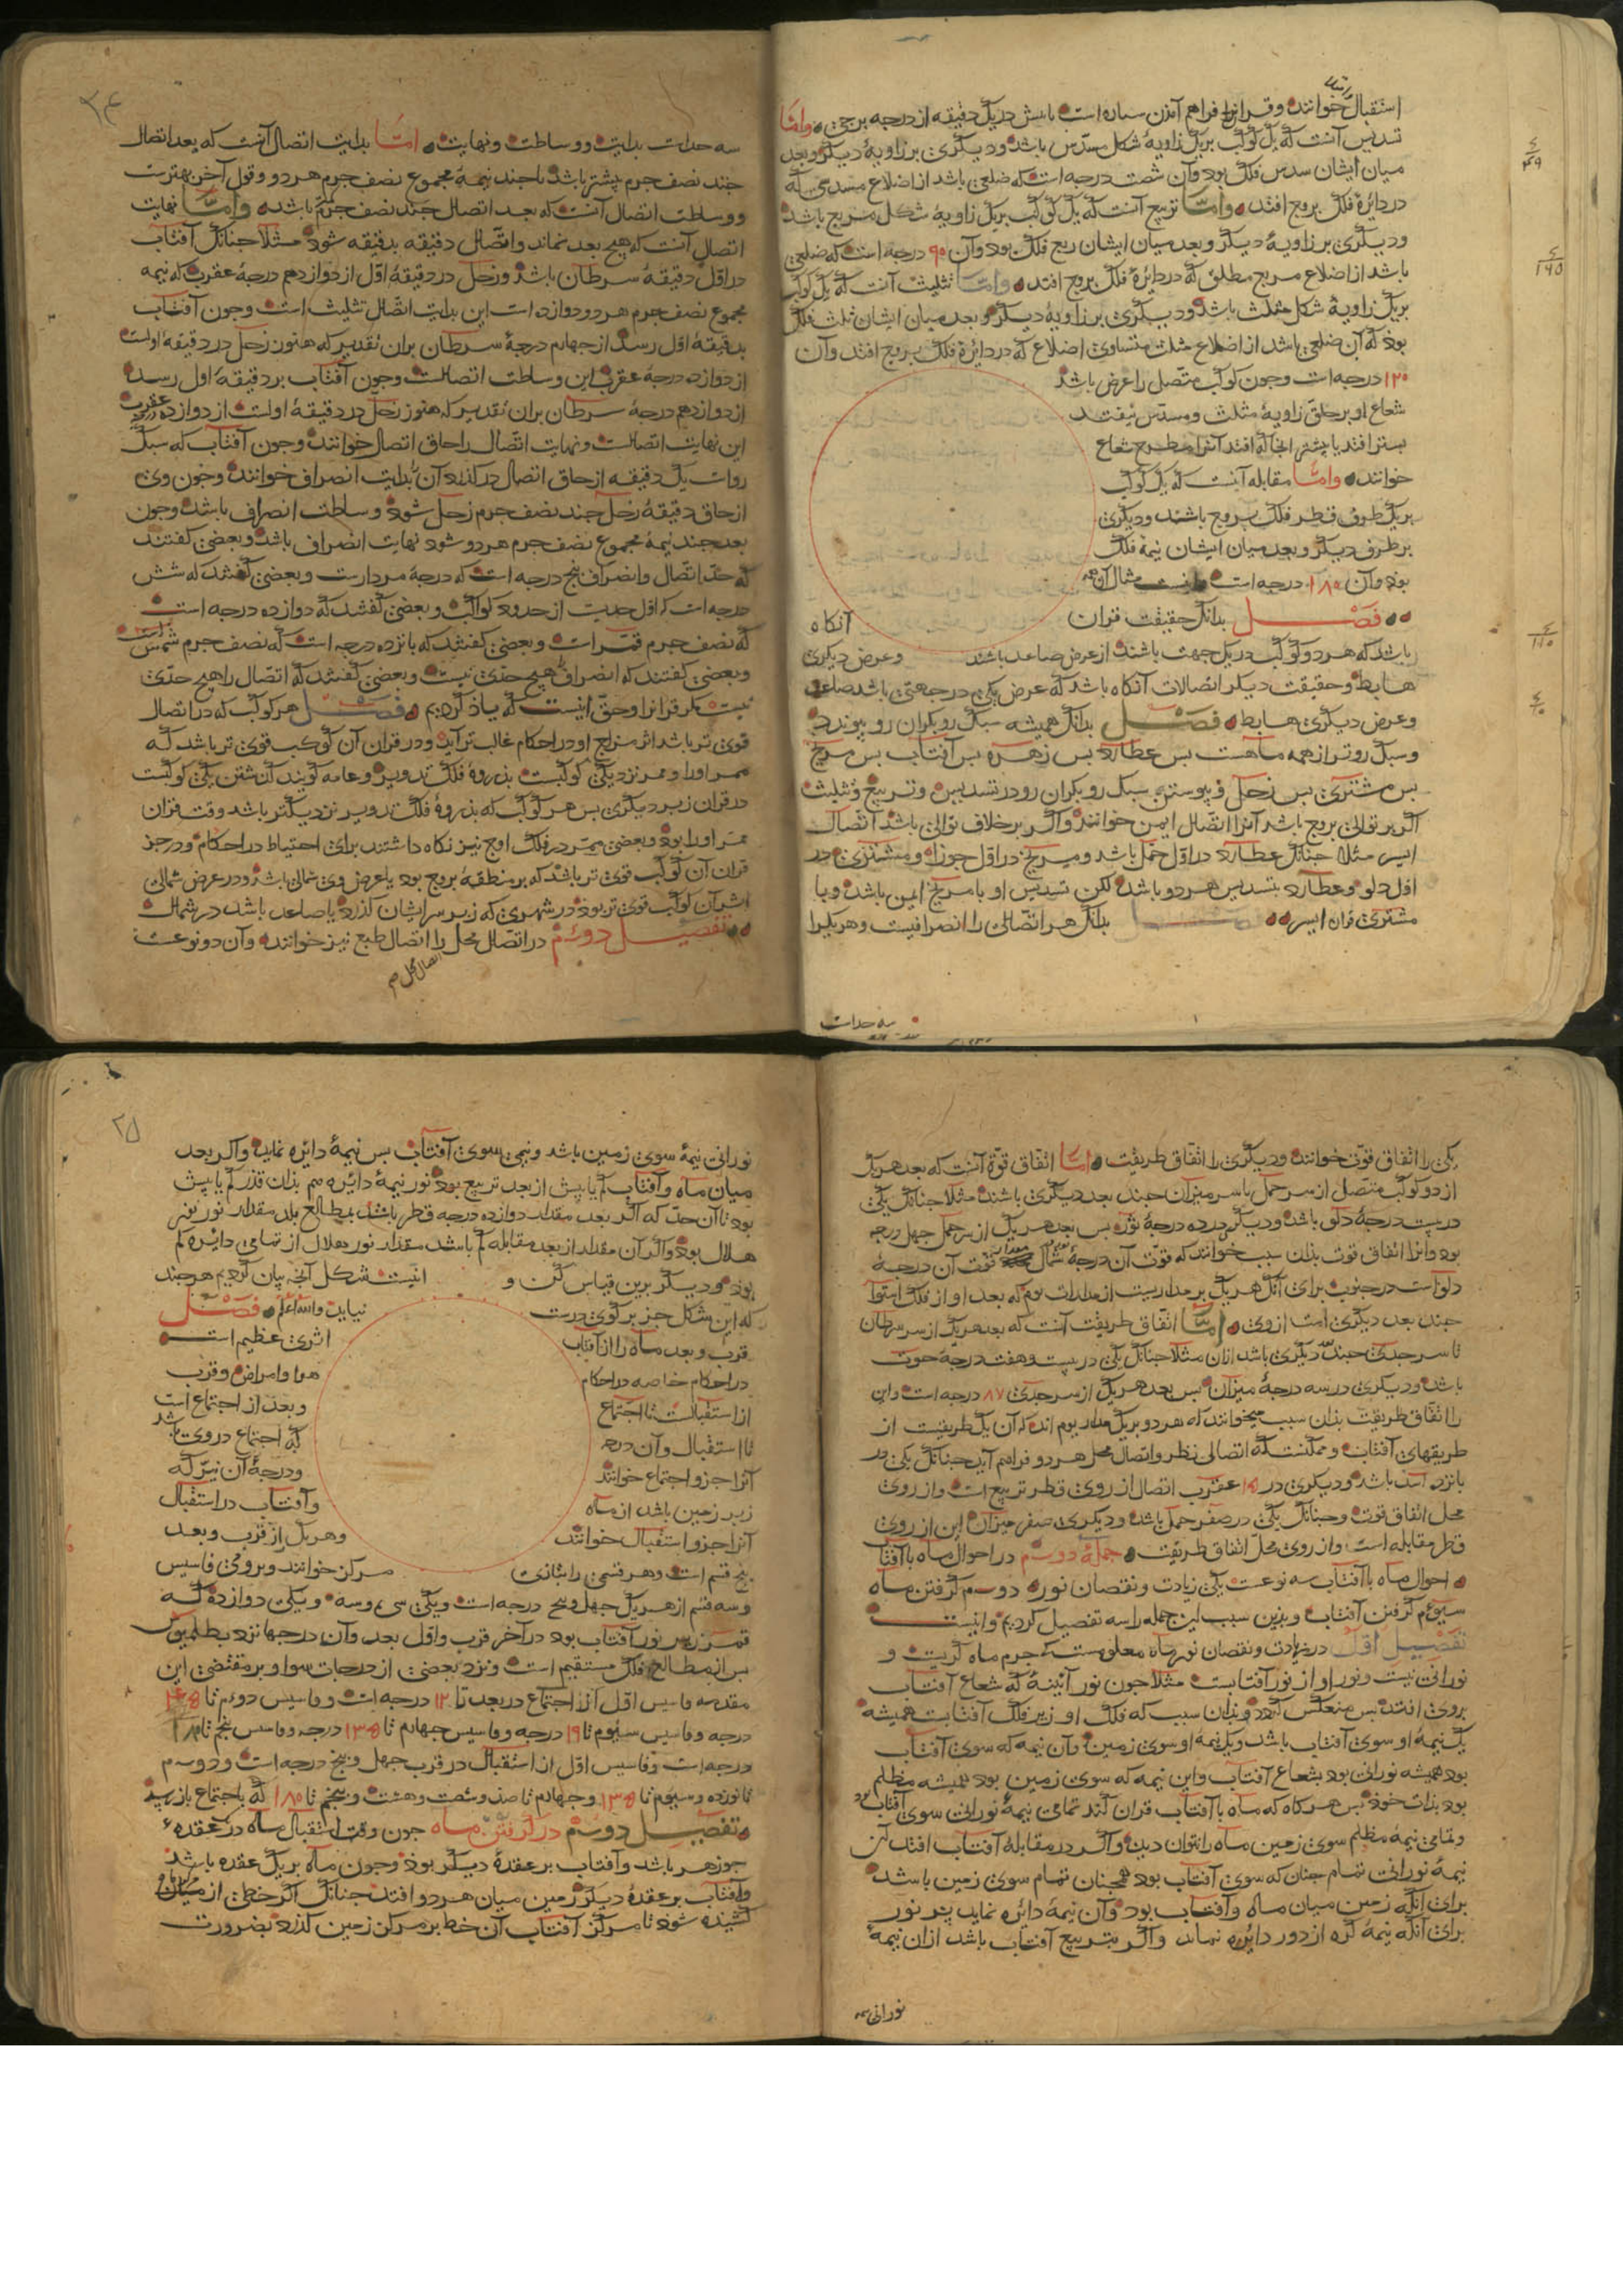 استقبال خوانند و قران را فراهم آمدن ستاره است بابیش در یک دقیقه از درجه برجی واما
تسدیس آنست که یک کوکب بر یک زاویهٔ شکل مسدّس باشد و دیگری بر زاویهٔ دیگر و بعد
میان ایشان سدس فلک بود و آن شصت درجه است که ضلعی باشد از اضلاع مسدسی که
در دایرهٔ فلک بروج افتد وامّا تربیع آنست که یک کوکب بر یک زاویهٔ شکل مربع باشد
و دیگری بر زاویهٔ دیگر و بعد میان ایشان ربع فلک بود و آن ۹۰ درجه است که ضلعی
باشد از اضلاع مربع مطلق که در دایرهٔ فلک بروج افتد وامّا تثلیث آنست که یک کوکب
بر یک زاویهٔ شکل مثلث باشد و دیگری بر زاویهٔ دیگر و بعد میان ایشان ثلث فلک
بود که آن ضلعی باشد از اضلاع مثلث متساوی اضلاع که در دایرهٔ فلک بروج افتد و آن
۱۲۰ درجه است وجون کوکب متّصل را عرض باشد
شعاع او بر حلقّ زاویهٔ مثلث و مسدّس نیفتد
خوانند وامّا مقابله آنست که یک کوکب
بر یک طرف قطر فلک بروج باشد و دیگری
بر طرف دیگر و بعد میان ایشان نیمهٔ فلک
بود و آن ۱۸۰ درجه است مثال آن
فصل بدانک حقیقت قران آنکاه
باشد که هر دو کوکب در یک جهت باشند از عرض صاعد باشند وعرض دیگری
هابط و حقیقت دیگر اتصالات آنکاه باشد که عرض یکی در جهتی باشد صاعد
وعرض دیگری هابط فصل بدانک همیشه سبک رو بکران رو پیوندد
و سبک روتر از همه ماهست بس عطارد بس زهره بس آفتاب بس مریخ
بس مشتری بس زحل و پیوستن سبک رو بکران رو در تسدیس و تربیع و تثلیث
اکر بر توالی بروج باشد آنرا اتصال ایمن خوانند و اکر بر خلاف توالی باشد اتصال
ایسر مثلا جنانک عطارد در اول حمل باشد و مریخ در اول جوزا و مشتری در
اول دلو و عطارد بتسدیس هر دو باشد لکن تسدیس او با مریخ ایمن باشد و با
مشتری ایسر بدانک هر اتصالی را انصرافیست و هر یکرا
سه حداست
سه حداست بدایت و وساطت و نهایت امّا بدایت اتصال آنست که بعد اتصال
جند نصف جرم پیشتر باشد یا جند نیمهٔ مجموع نصف جرم هر دو و قول آخر بهترست
و وساطت اتصال آنست که بعد اتصال جند نصف جرم باشد وامّا نهایت
اتصال آنست که هیچ بعد نماند و اتّصال دقیقه بدقیقه شود مثلا جنانک آفتاب
در اوّل دقیقهٔ سرطان باشد و زحل در دقیقهٔ اوّل از دوازدهم درجهٔ عقرب که نیمه
مجموع نصف جرم هر دو دوازده است این بدایت اتّصال تثلیث است وجون آفتاب
بدقیقهٔ اوّل رسد از جهارم درجهٔ سرطان بران تقدیر که هنوز زحل در دقیقهٔ اولست
از دوازده درجهٔ عقرب این وساطت اتصالست وجون آفتاب بر دقیقهٔ اول رسد
از دوازدهم درجهٔ سرطان بران تقدیر که هنوز زحل در دقیقهٔ اولست از دوازده عقرب
این نهایت اتصالست و نهایت اتّصال را حاق اتصال خوانند وجون آفتاب که سبک
رواست یک دقیقه از حاق اتصال در کذرد آن بدایت انصراف خوانند وجون وی
از حاق دقیقهٔ زحل جند نصف جرم زحل شود وساطت انصراف باشد وجون
بعد جند نیمهٔ مجموع نصف جرم هر دو شود نهایت انصراف باشد و بعضی کفتند
که حدّ اتّصال وانصراف پنج درجه است و بعضی کفتند که شش
درجه است که اوّل حدیست از حدود کواکب و بعضی کفتند که دوازده درجه است
که نصف جرم قمرست و بعضی کفتند که بانزده درجه است که نصف جرم شمس است
و بعضی کفتند که انصراف را هیچ حدّی نیست و بعضی کفتند که اتّصال را هیچ حدّی
نیست مکر قران را و حقّ اینست که یاذ کردیم فصل هر کوکب که در اتصال
قوی تر باشد اثر مزاج او در احکام غالب تر آید و در قران آن کوکب قوی تر باشد که
در قران زبر دیکری بس هر کوکب که بذروهٔ فلک تدویر نزدیکتر باشد وقت قران
ممر او را بود و بعضی ممر در فلک اوج نیز نکاه داشتند برای احتیاط در احکام و در جز
قران آن کوکب قوی تر باشد که بر منطقهٔ بروج بود یا عرض وی شمالی باشد و در عرض شمالی
اثر آن کوکب قوی تر بود در شهری که زبر سر ایشان کذرد یا صاعد باشد در شمال
تفصیل دوئم در اتصال محل را اتصال طبع نیز خوانند و آن دو نوعست
یکی را اتفاق قوّت خوانند و دیکری را اتفاق طریقت امّا اتفاق قوّة آنست که بعد هر یک
از دو کوکب متصل از سر حمل یا سر میزان جند بعد دیکری باشد مثلا جنانک یکی
در بیست درجهٔ دلو باشد و دیکر در ده درجهٔ ثور بس بعد هر یک از سر حمل جهل درجه
بود و آنرا اتفاق قوت بذان سبب خوانند که قوّت آن درجهٔ شمال قوّت آن درجهٔ
دلواست در جنوب برای آنک هر یک بر مداریست از مدارات یوم که بعد او از فلک استوا
جند بعد دیکری است از وی امّا اتّفاق طریقت آنست که بعد هر یک از سر سرطان
تا سر جدی جند دیکری باشد از ان مثلا جنانک یکی در بیست و هفت درجهٔ حوت
باشد و دیکری در سه درجهٔ میزان بس بعد هر یک از سر جدی ۸۷ درجه است و این
را اتّفاق طریقت بذان سبب میخوانند که هر دو بر یک مدار یوم اند که آن یک طریقیست از
طریقهای آفتاب و ممکنست که اتصالی نظر و اتصال محل هر دو فراهم آید جنانک یکی در
بانزده اسد باشد و دیکری در ۱۵ عقرب اتصال از روی قطر تربیع است و از روی
محل اتفاق قوت و جنانک یکی در صفر حمل باشد و دیکری صفر میزان این از روی
قطر مقابله است و از روی محل اتفاق طریقت جملهٔ دوسم در احوال ماه با آفتاب
احوال ماه با آفتاب سه نوعست یکی زیادت و نقصان نور دوسم کرفتن ماه
سیوم کرفتن آفتاب و بذین سبب این جمله را سه تفصیل کردیم و اینست
تفصیل اوّل در زیادت و نقصان نور ماه معلومست که جرم ماه کریست و
نورانی نیست و نور او از نور آفتابست مثلا جون نور آئینهٔ که شعاع آفتاب
بروی افتد بس منعکس کردد و بذان سبب که فلک او زیر فلک آفتابست همیشه
یک نیمهٔ او سوی آفتاب باشد و یک نیمهٔ او سوی زمین و آن نیمه که سوی آفتاب
بود همیشه نورانی بود بشعاع آفتاب و این نیمه که سوی زمین بود همیشه مظلم
بود بذات خود بس هر کاه که ماه با آفتاب قران کند تمامی نیمهٔ نورانی سوی آفتاب بود
و تمامی نیمهٔ مظلم سوی زمین ماه را نتوان دید و اکر در مقابلهٔ آفتاب افتد آن
نیمهٔ نورانی تمام جنان که سوی آفتاب بود همجنان تمام سوی زمین باشد
برای آنکه زمین میان ماه و آفتاب بود و آن نیمهٔ دائره نماید پر نور
برای آنکه نیمهٔ کره از دور دائره نماید و اکر بتربیع آفتاب باشد از ان نیمهٔ
نورانی نیمه
نورانی نیمهٔ سوی زمین باشد و نیمی سوی آفتاب بس نیمهٔ دائره نماید و اکر بعد
میان ماه و آفتاب کم یا بیش از بعد تربیع بود نور نیمهٔ دائره هم بذان قدر کم یا بیش
بود تا آن حدّ که اکر بعد مقدار دوازده درجه قطر باشد بمطالع بلد مقدار نور نور
هلال بود و اکر آن مقدار از بعد مقابله کم باشد مقدار نور هلال از تمامی دائره کم
بود و دیکر برین قیاس کن و اینست شکل آنچه بیان کردیم هرجند
که این شکل جز بر کوی درست نیاید والله اعلم فصل
قرب و بعد ماه را از آفتاب اثری عظیم است
در احکام خاصه در احکام هوا و امراض و قرب
از استقبالست تا اجتماع و بعد از اجتماع است
تا استقبال و آن درجه که اجتماع در وی باشد
آنرا جزو اجتماع خوانند و درجهٔ آن نیّر که
زبر زمین باشد از ماه و آفتاب در استقبال
آنرا جزو استقبال خوانند و هر یک از قرب و بعد
پنج قسم است و هر قسمی را بتازی مرکز خوانند و برومی فاسیس
و سه قسم از هر یک جهل و پنج درجه است و یکی سی و سه و یکی دوازده که
قمر زیر نور آفتاب بود در آخر قرب و اوّل بعد و آن درجها نزد بطلمیوس
بس از مطالع فلک مستقیم است و نزد بعضی از درجات سوا و بر مقتضی این
مقدمه فاسیس اوّل از اجتماع در بعد تا ۱۲ درجه است و فاسیس دوئم تا ۴۵
درجه و فاسیس سیوم تا ۹۰ درجه و فاسیس جهارم تا ۱۳۵ درجه و فاسیس پنجم تا ۱۸۰
درجه است و فاسیس اوّل از استقبال در قرب جهل و پنج درجه است و دوسم
تا نود و سیوم تا ۱۳۵ و جهارم تا صد و شصت و هشت و پنجم تا ۱۸۰ که باجتماع باز رسد
تفصیل دوسم در کرفتن ماه جون وقت استقبال ماه در عقدهٔ
جوزهر باشد و آفتاب بر عقدهٔ دیکر بود وجون ماه بر یک عقده باشد
و آفتاب بر عقدهٔ دیکر زمین میان هر دو افتد جنانک اکر خطی از میان
کشیده شود تا مرکز آفتاب آن خط بر مرکز زمین کذرد بضرورت